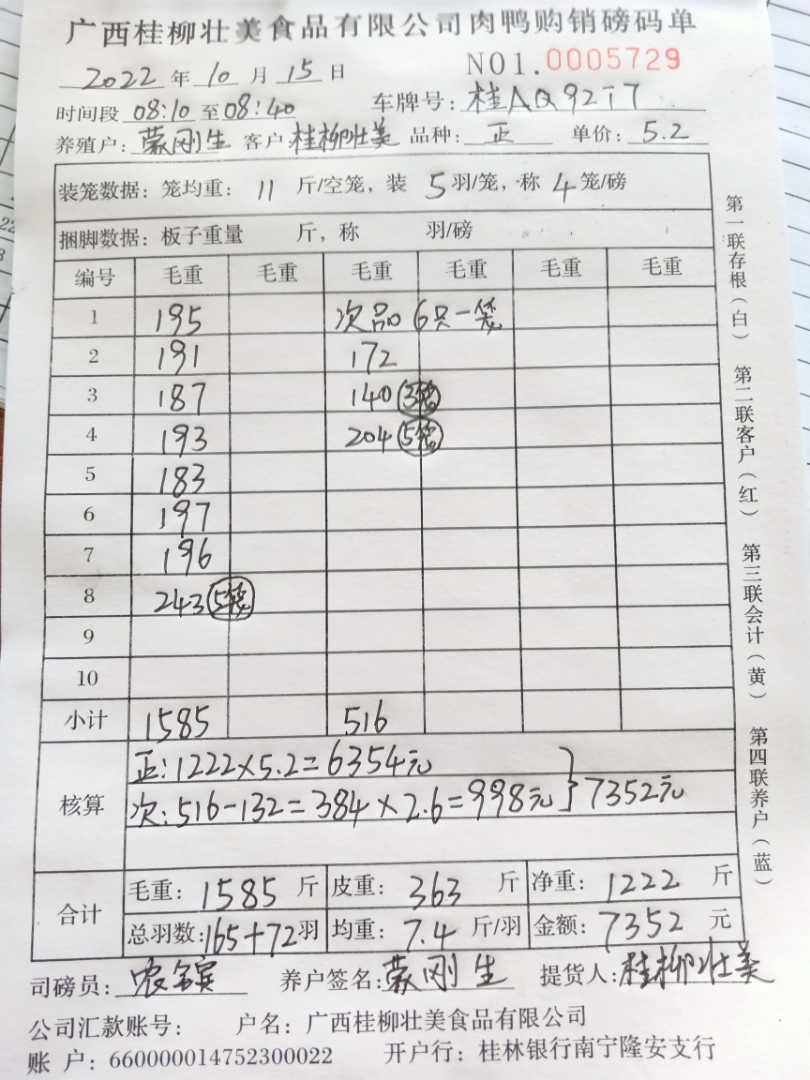 广西桂柳壮美食品有限公司肉鸭购销磅码单
2022年10月15日 NO1.0005729
时间段 08:10至08:40 车牌号：
养殖户：蒙刚生 客户 桂柳壮美 品种：正 单价：5.2
装笼数据：笼均重：11斤/空笼，装5羽/笼，称4笼/磅
捆脚数据：板子重量 斤，称 羽/磅
编号 毛重 毛重 毛重 毛重 毛重 毛重
1 195 次品 6只一笼
2 191 172
3 187 140 3笼
4 193 204 5笼
5 183
6 197
7 196
8 243 5笼
9
10
小计 1585 516
核算
正：1222×5.2=6354元
次：516-132=384×2.6=998元 } 7352元
合计
毛重：1585斤 皮重：363斤 净重：1222斤
总羽数：165+72羽 均重：7.4斤/羽 金额：7352元
司磅员： 养户签名：蒙刚生 提货人：桂柳壮美
公司汇款账号： 户名：广西桂柳壮美食品有限公司
账 户：660000014752300022 开户行：桂林银行南宁隆安支行
第一联存根（白）
第二联客户（红）
第三联会计（黄）
第四联养户（蓝）